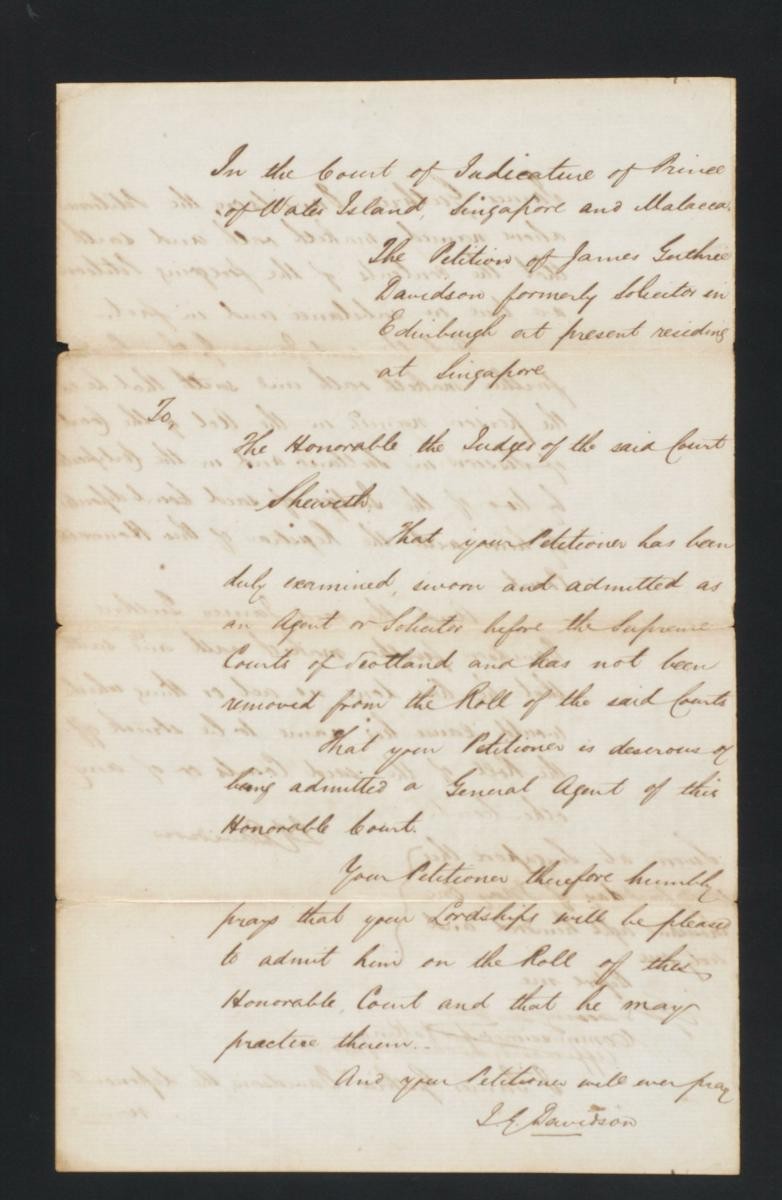 In the Court of Judicature of Prince
of Wales Island, Singapore and Malacca.
The Petition of James Guthrie
Davidson formerly Solicitor in
Edinburgh at present residing
at Singapore
To,
The Honorable the Judges of the said Court
Sheweth
That your Petitioner has been
duly examined, sworn and admitted as
an Agent or Solicitor before the Supreme
Courts of Scotland and has not been
removed from the Roll of the said Courts
That your Petitioner is deserous of
being admitted a General Agent of this
Honorable Court.
Your Petitioner therefore humbly
prays that your Lordships will be pleased
to admit him on the Roll of this
Honorable Court and that he may
practice therein..
And your Petitioner will ever pray
J G Davidson